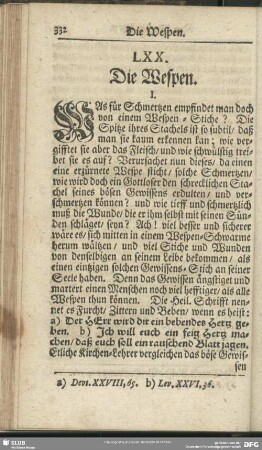 332 Die Wespen.
LXX.
Die Wespen.
I.
WAs für Schmertzen empfindet man doch
von einem Wespen-Stiche? Die
Spitze ihres Stachels ist so subtil, daß
man sie kaum erkennen kan; wie ver-
gifftet sie aber das Fleisch/ und wie schwülstig trei-
bet sie es auf? Verursachet nun dieses/ da einen
eine erzürnete Wespe sticht/ solche Schmertzen/
wie wird doch ein Gottloser den schrecklichen Sta-
chel seines bösen Gewissens erdulten/ und ver-
schmertzen können? und wie tieff und schmertzlich
muß die Wunde/ die er ihm selbst mit seinen Sün-
den schläget/ seyn? Ach! viel besser und sicherer
wäre es/ sich mitten in einem Wespen-Schwarme
herum wältzen/ und viel Stiche und Wunden
von denselbigen an seinem Leibe bekommen/ als
einen eintzigen solchen Gewissens-Stich an seiner
Seele haben. Denn das Gewissen ängstiget und
martert einen Menschen noch viel hefftiger/ als alle
Wespen thun können. Die Heil. Schrifft nen-
net es Furcht/ Zittern und Beben/ wenn es heist:
a) Der HErr wird dir ein bebendes Hertz ge-
ben. b) Ich will euch ein feig Hertz ma-
chen/ daß euch soll ein rauschend Blatt jagen.
Etliche Kirchen-Lehrer vergleichen das böse Gewis-
sen
a) Deut. XXVIII, 65. b) Lev. XXVI, 36.
SLUB
DFG